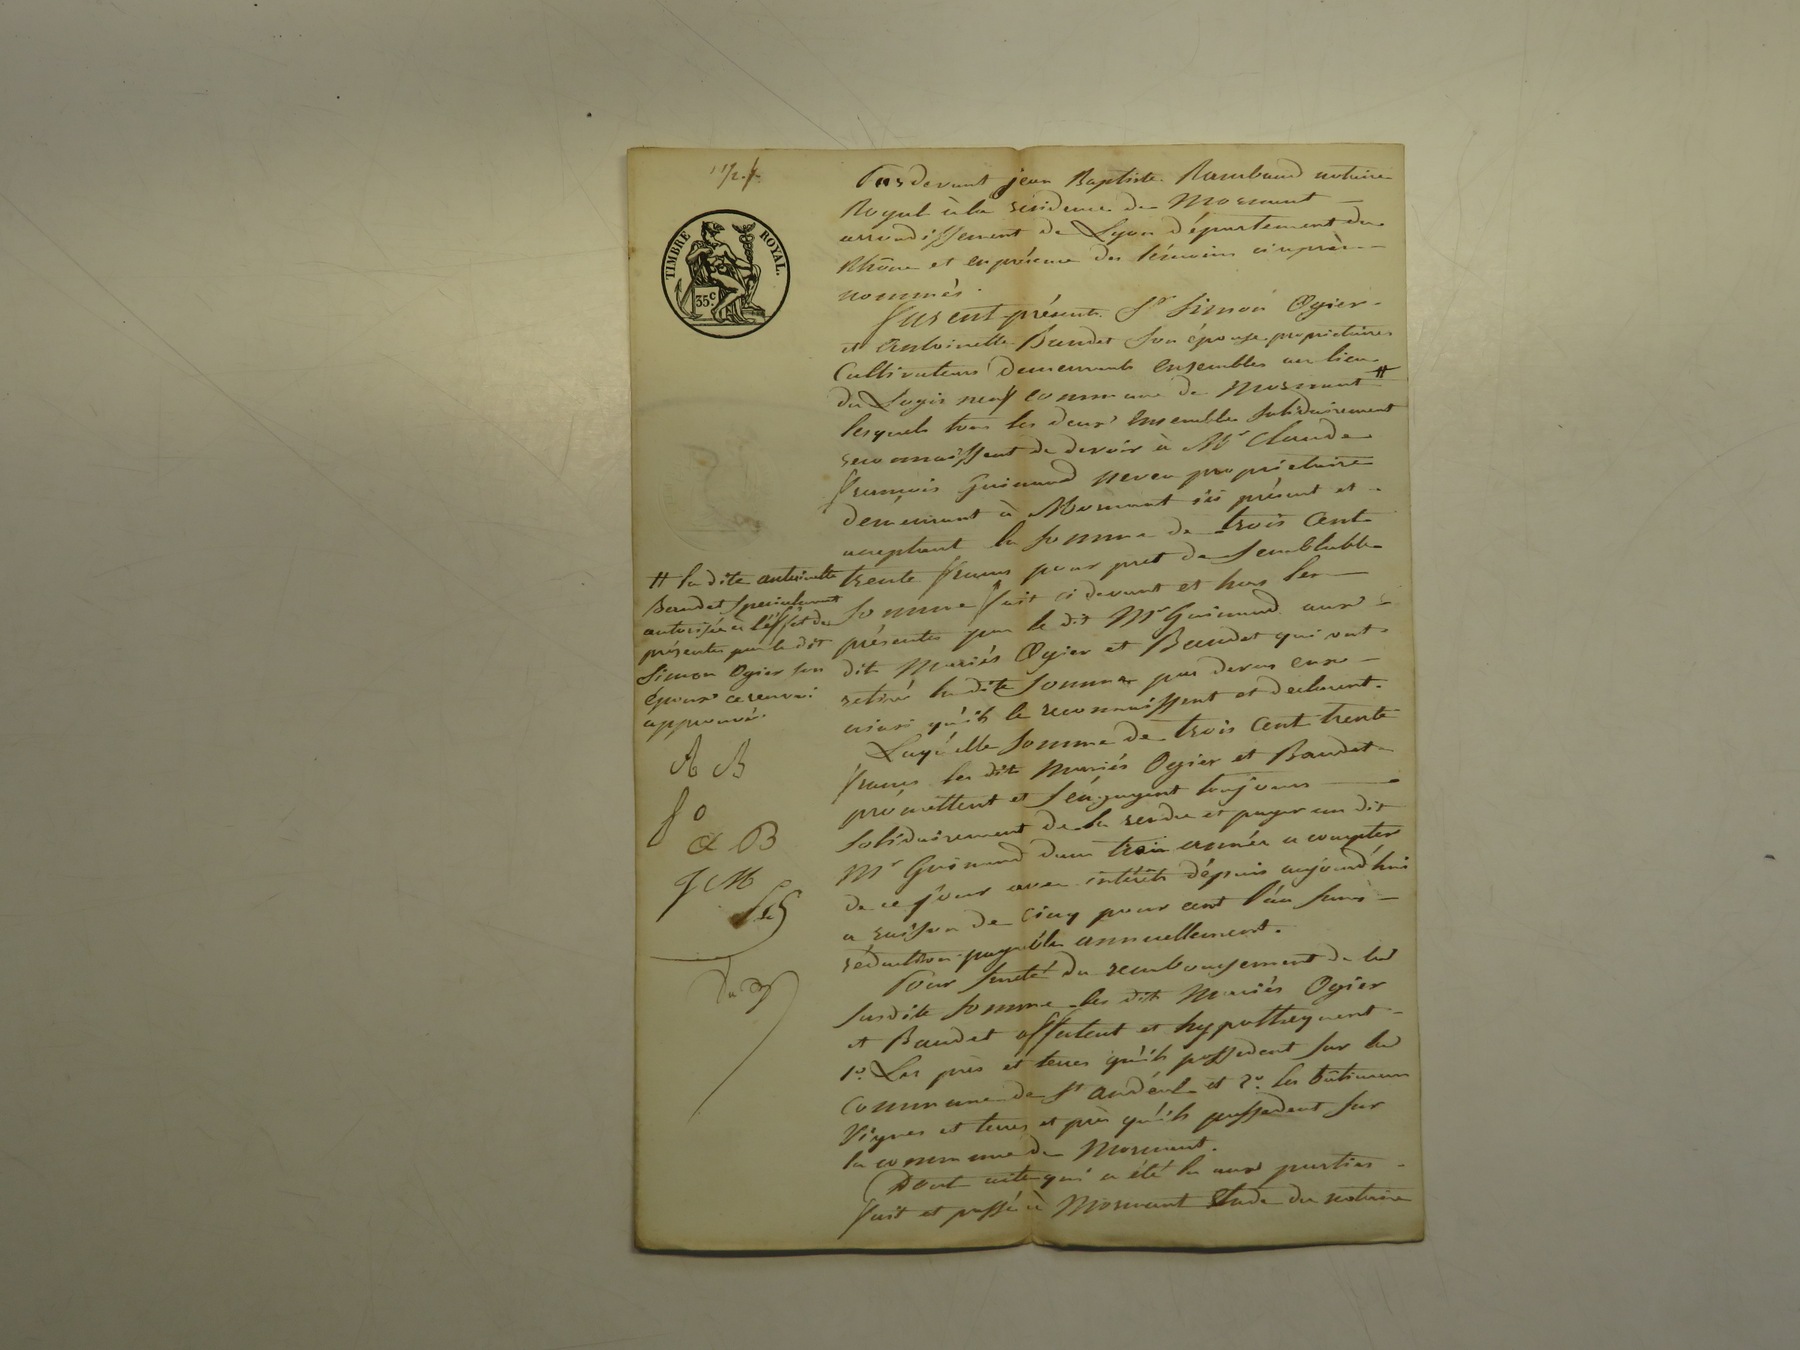 TIMBRE ROYAL.
35c
Pardevant jean Baptiste Rambaud notaire
Royal à la résidence de Mornant
arrondissement de Lyon département du
Rhône et en présence des témoins ci après
nommés
furent présents Sr Simon Ogier
et Antoinette Baudet son épouse propriétaires
Cultivateurs demeurants ensembles au lieu
du Logis neuf commune de Mornant #
lesquels tous les deux ensemble solidairement
reconnaissent de devoir à Mr Claude
françois Guinand neveu propriétaire
demeurant à Mornant ici présent et
acceptant la somme de trois cent
trente francs pour pret de semblable
somme fait ci devant et hors les
présentes par le dit Mr Guinand aux
dit Mariés Ogier et Baudet qui ont
retiré la dite somme par devers eux
ainsi qu'ils le reconnaissent et declarent.
Laqu'elle somme de trois cent trente
francs les dits Mariés Ogier et Baudet
promettent et s'engagent toujours
solidairement de la rendre et payer au dit
Mr Guinand dans trois année a compter
de ce jour avec intérêts dépuis aujourd'hui
a raison de cinq pour cent l'an sans
réduction payable annuellement.
Pour sureté du remboursement de la
susdite somme les dits Mariés Ogier
et Baudet affectent et hypothequent
1o. Les près et terres qu'ils possedent sur la
commune de St andéol et 2o. les bâtimens
Vignes et terres et près qu'ils possedent sur
la commune de Mornant.
Dont acte qui a été lu aux parties
fait et passé à Mornant Etude du notaire
# la dite antoinette
Baudet specialement
autorisée à l'effet des
présentes par le dit
Simon Ogier son
époux ce renvoi
approuvé.
A B